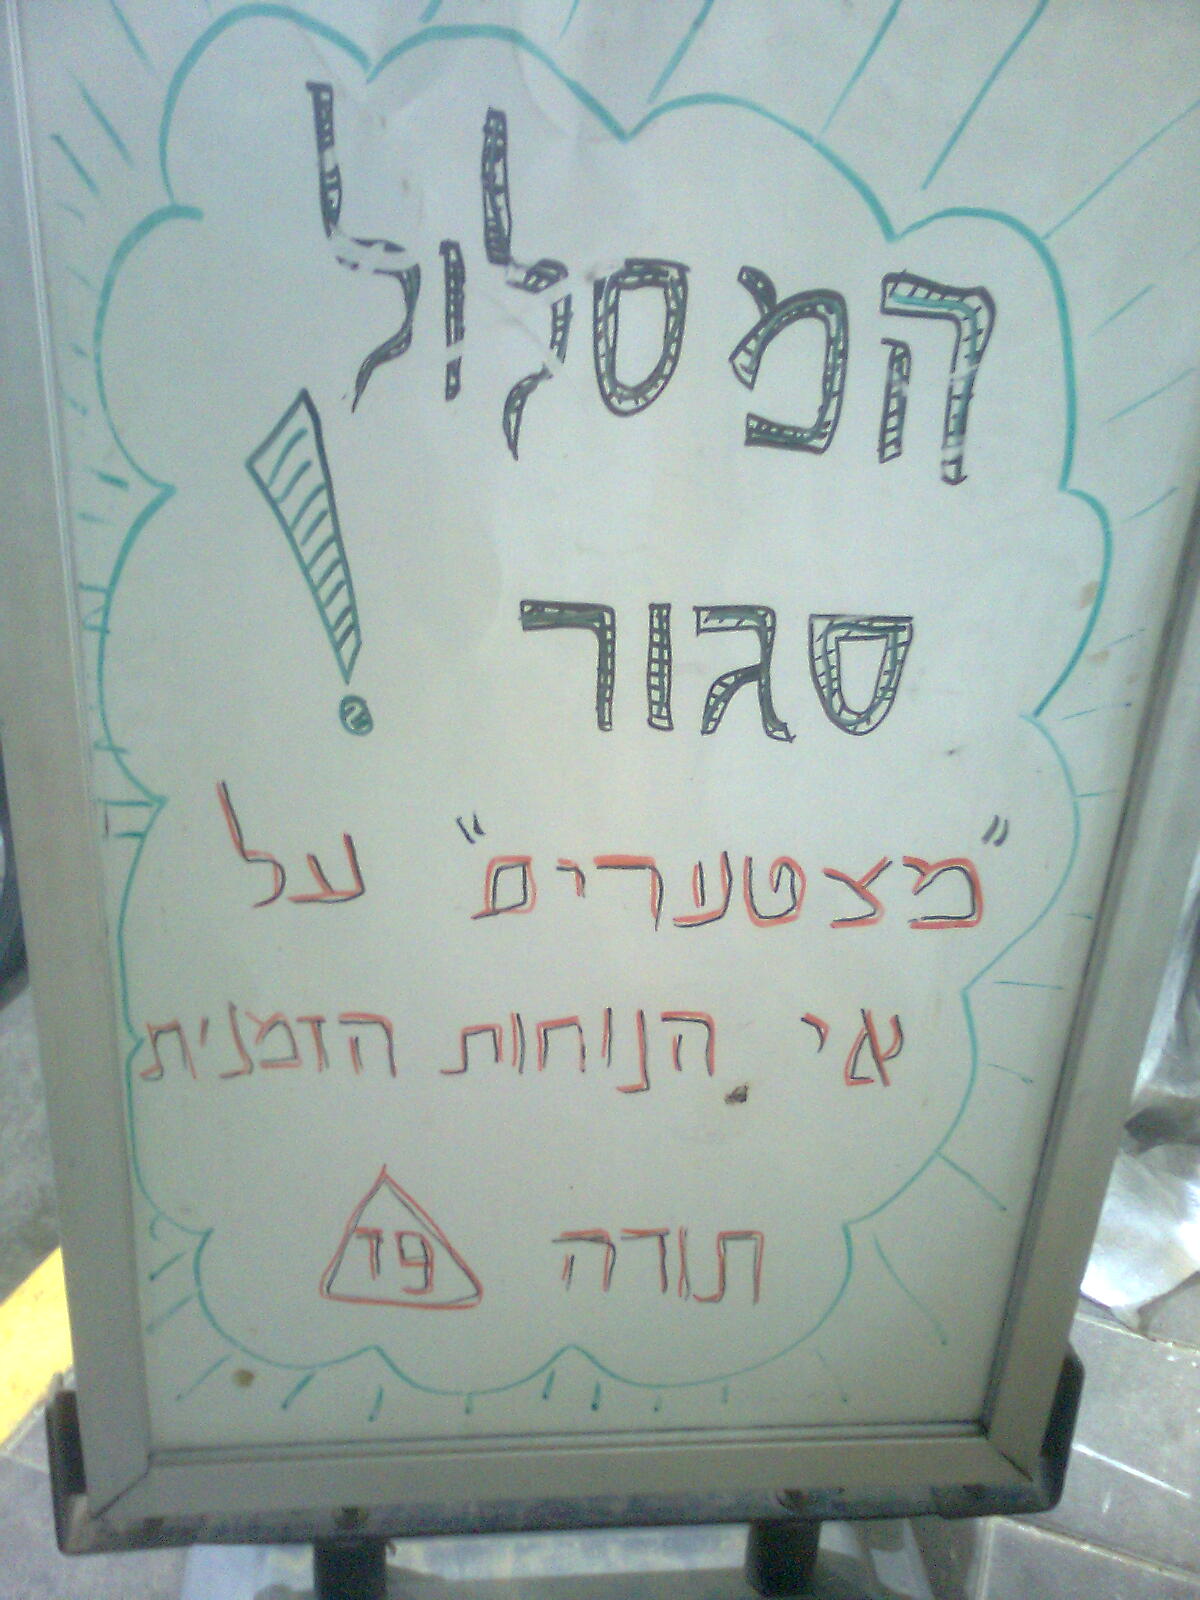 המסלול
סגור !
"מצטערים" על
אי הנוחות הזמנית
תודה פז